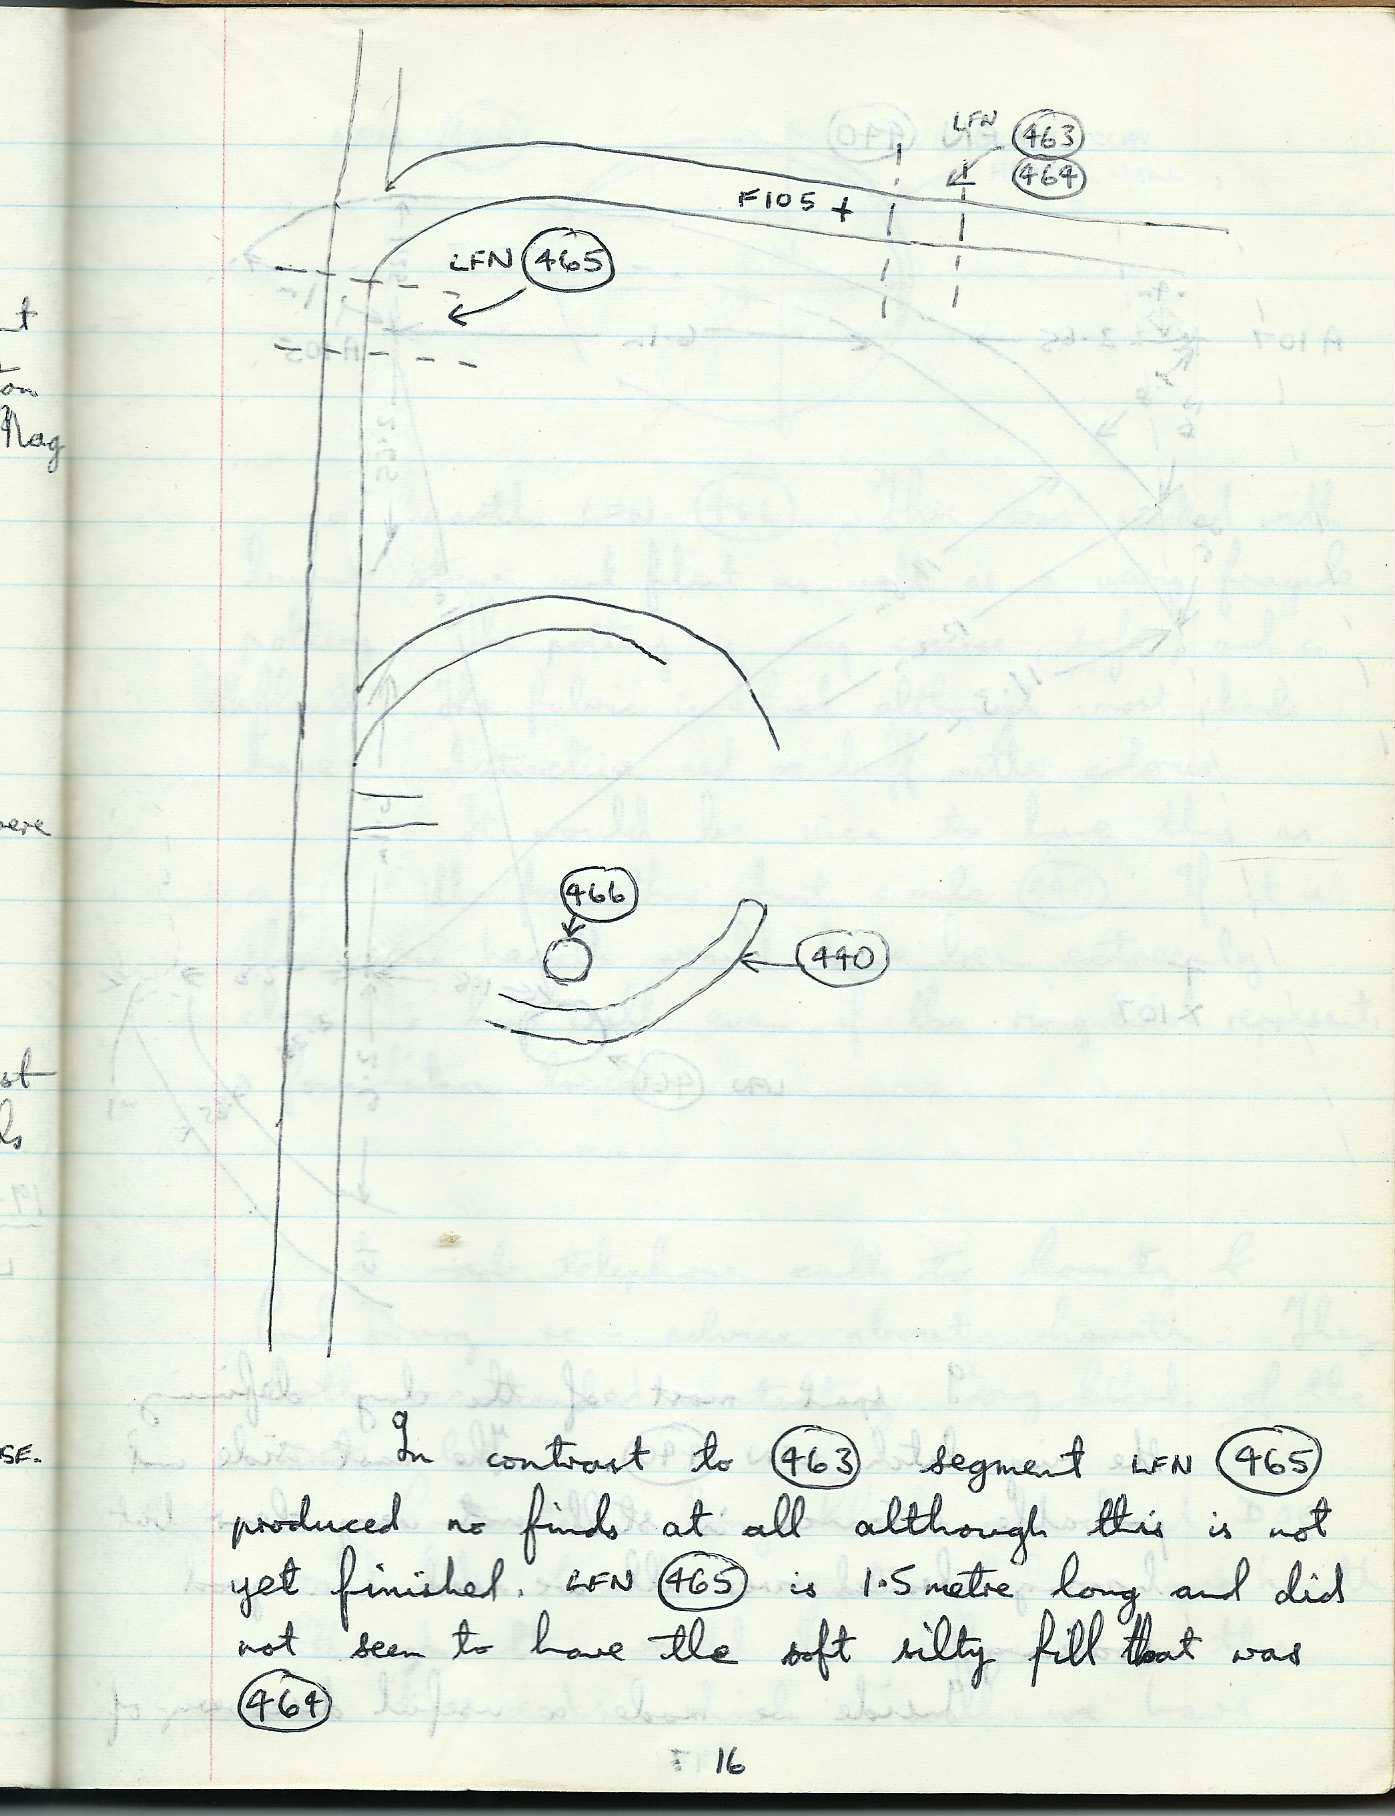 LFN 463
464
F105 +
LFN 465
466
440
In contrast to 463 segment LFN 465
produced no finds at all although this is not
yet finished. LFN 465 is 1.5 metre long and did
not seem to have the soft silty fill that was
464
16
nt
on
Mag
were
st
ls
19
L
SE.